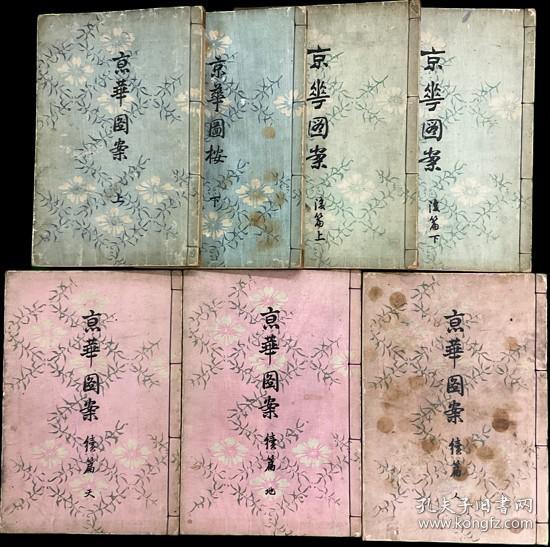 京華图案
上
京華圖桉
下
京華图案
後篇上
京華图案
後篇下
京華图案
續篇
天
京華图案
續篇
地
京華图案
續篇
人
孔夫子旧书网
www.kongfz.com